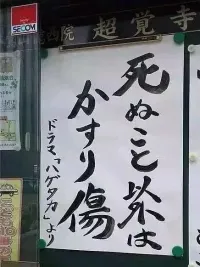 SECOM
超覚寺
死ぬこと以外は
かすり傷
ドラマ「ハゲタカ」より